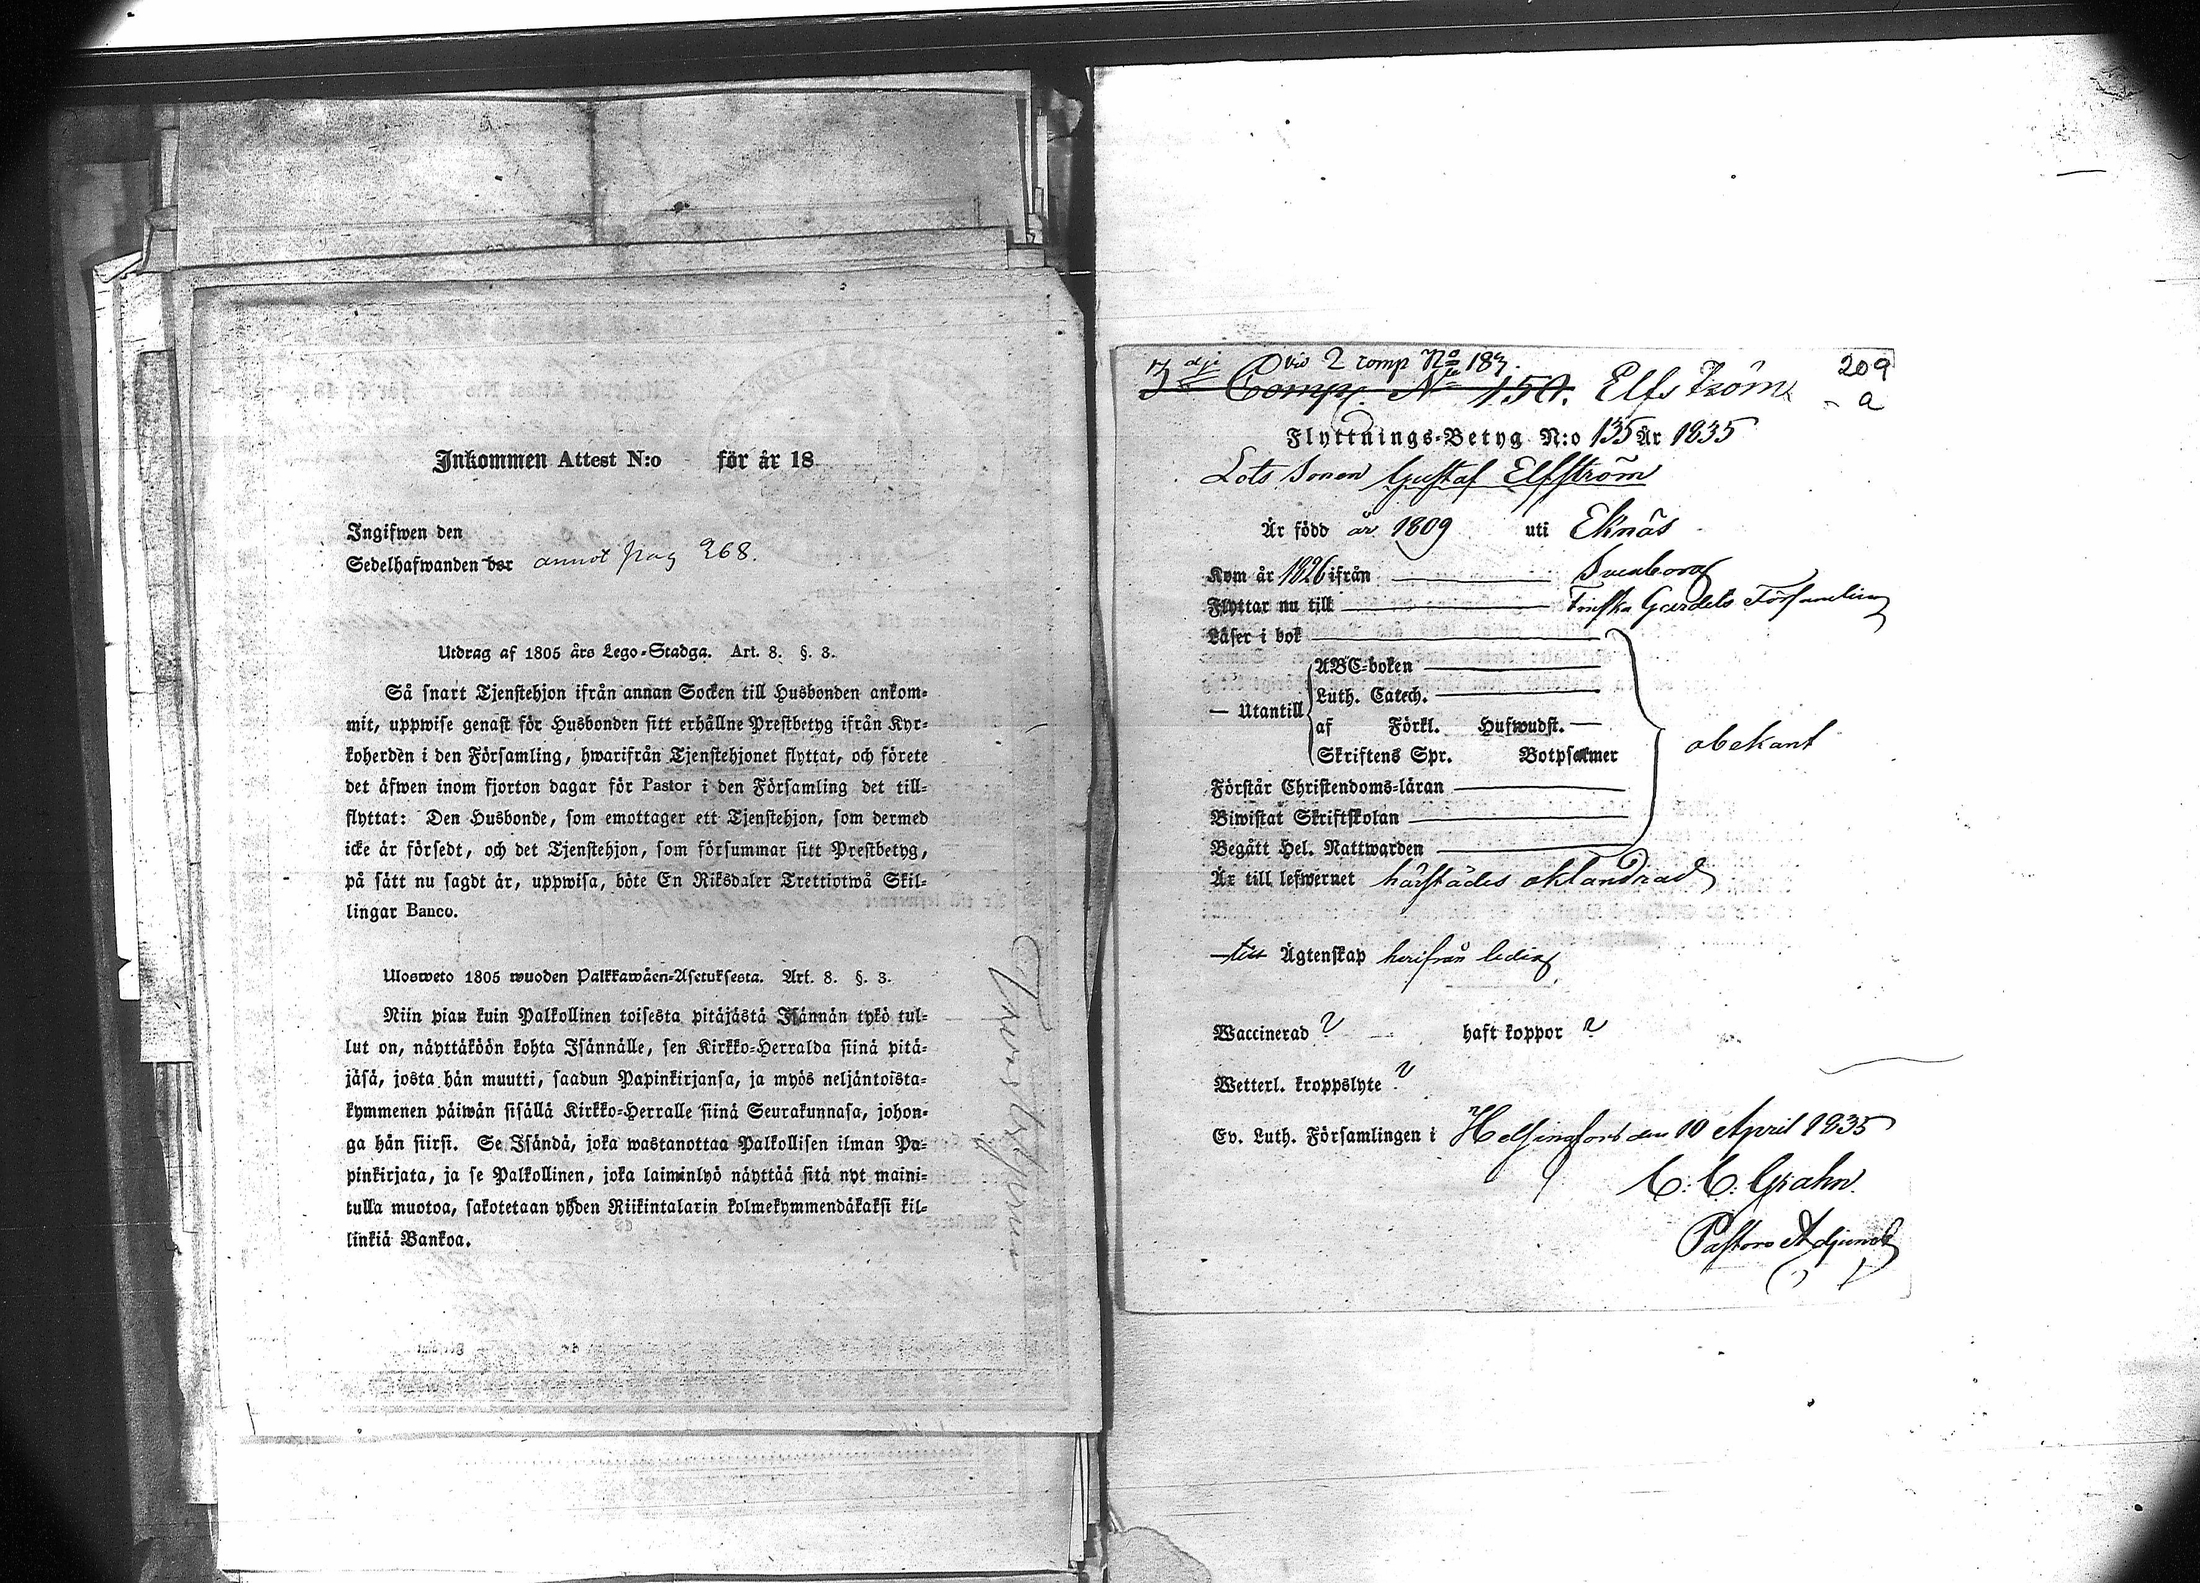 Inkommen Attest N:o för år 18
Ingifwen den
Sedelhafwanden bor annot pag 268.
Utdrag af 1805 års Lego-Stadga. Art. 8. §. 3.
Så snart Tjenstehjon ifrån annan Socken till Husbonden ankom-
mit, uppwise genast för Husbonden sitt erhållne Prestbetyg ifrån Kyr-
koherden i den Församling, hwarifrån Tjenstehjonet flyttat, och förete
det äfwen inom fjorton dagar för Pastor i den Församling det till-
flyttat: Den Husbonde, som emottager ett Tjenstehjon, som dermed
icke är försedt, och det Tjenstehjon, som försummar sitt Prestbetyg,
på sätt nu sagdt är, uppwisa, böte En Riksdaler Trettiotwå Skil-
lingar Banco.
Ulosweto 1805 wuoden Palkkawäen-Asetuksesta. Art. 8. §. 3.
Niin pian kuin Palkollinen toisesta pitäjästä Isännän tykö tul-
lut on, näyttäköön kohta Isännälle, sen Kirkko-Herralda siinä pitä-
jäsä, josta hän muutti, saadun Papinkirjansa, ja myös neljäntoista-
kymmenen päiwän sisällä Kirkko-Herralle siinä Seurakunnasa, johon-
ga hän siirsi. Se Isändä, joka wastanottaa Palkollisen ilman Pa-
pinkirjata, ja se Palkollinen, joka laiminlyö näyttää sitä nyt maini-
tulla muotoa, sakotetaan yhden Riikintalarin kolmekymmendäkaksi kil-
linkiä Bankoa.
vid 2 comp No 183.
3 dje Comp. No 150. Elfström 209
a
Flyttnings-Betyg N:o 135 år 1835
Lots Sonen Gustaf Elfström
Är född år 1809 uti Eknäs
Kom år 1826 ifrån Sveaborg
Flyttar nu till Finska Gardets Församling
Läser i bok
ABC-boken
Luth. Catech.
— Utantill
af Förkl. Hufwudst.
Skriftens Spr. Botpsalmer
obekant
Förstår Christendoms-läran
Biwistat Skriftskolan
Begått Hel. Nattwarden
Är till lefwernet härstädes oklandrad
till Ägtenskap herifrån ledig
Waccinerad ? haft koppor ?
Wetterl. kroppslyte ?
Ev. Luth. Församlingen i Helsingfors den 10 April 1835
C. C. Grahn.
Pastors Adjunct